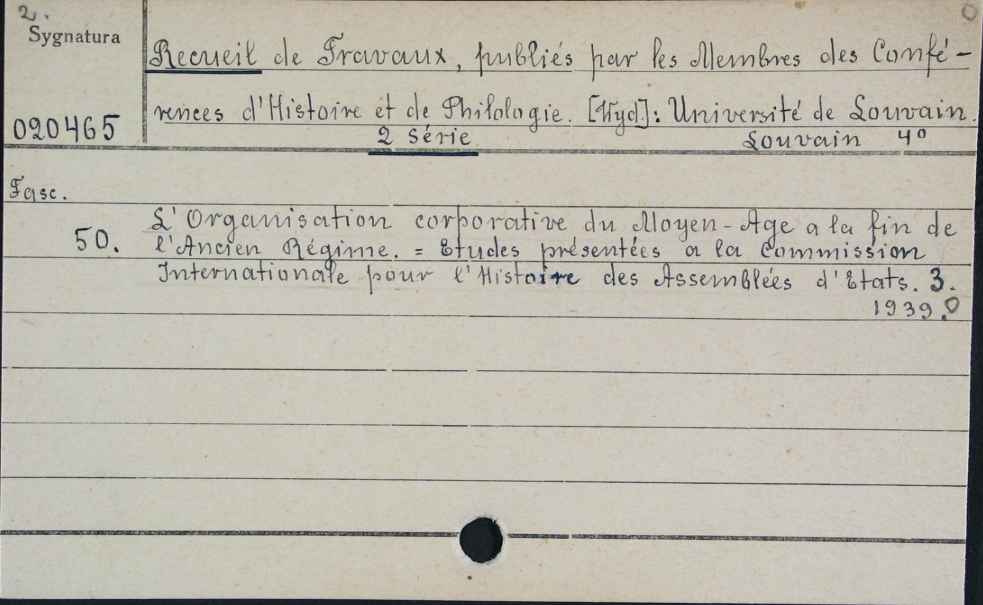 2.
Sygnatura
020465
Recueil de Travaux, publiés par les Membres des Confé-
rences d'Histoire et de Philologie. [Wyd]: Université de Louvain.
2 Série Louvain 4°
Fasc.
50. L'Organisation corporative du Moyen-Age a la fin de
l'Ancien Régime. = Etudes présentées a la Commission
Internationale pour l'Histoire des Assemblées d'Etats. 3.
1939.